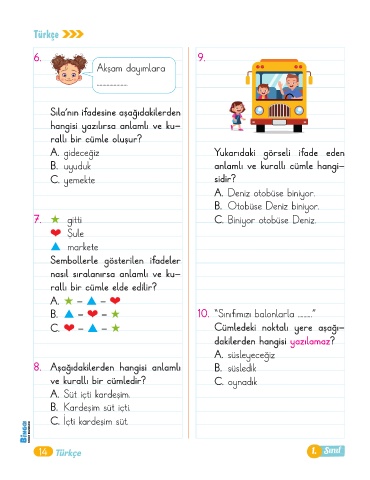 Türkçe
6.
Akşam dayımlara
..................
Sıla'nın ifadesine aşağıdakilerden
hangisi yazılırsa anlamlı ve ku-
rallı bir cümle oluşur?
A. gideceğiz
B. uyuduk
C. yemekte
7. ★ gitti
❤ Şule
▲ markete
Sembollerle gösterilen ifadeler
nasıl sıralanırsa anlamlı ve ku-
rallı bir cümle elde edilir?
A. ★ - ▲ - ❤
B. ▲ - ❤ - ★
C. ❤ - ▲ - ★
8. Aşağıdakilerden hangisi anlamlı
ve kurallı bir cümledir?
A. Süt içti kardeşim.
B. Kardeşim süt içti.
C. İçti kardeşim süt.
9.
Yukarıdaki görseli ifade eden
anlamlı ve kurallı cümle hangi-
sidir?
A. Deniz otobüse biniyor.
B. Otobüse Deniz biniyor.
C. Biniyor otobüse Deniz.
10. "Sınıfımızı balonlarla ........"
Cümledeki noktalı yere aşağı-
dakilerden hangisi yazılamaz?
A. süsleyeceğiz
B. süsledik
C. oynadık
BİNGO!
14 Türkçe
1. Sınıf